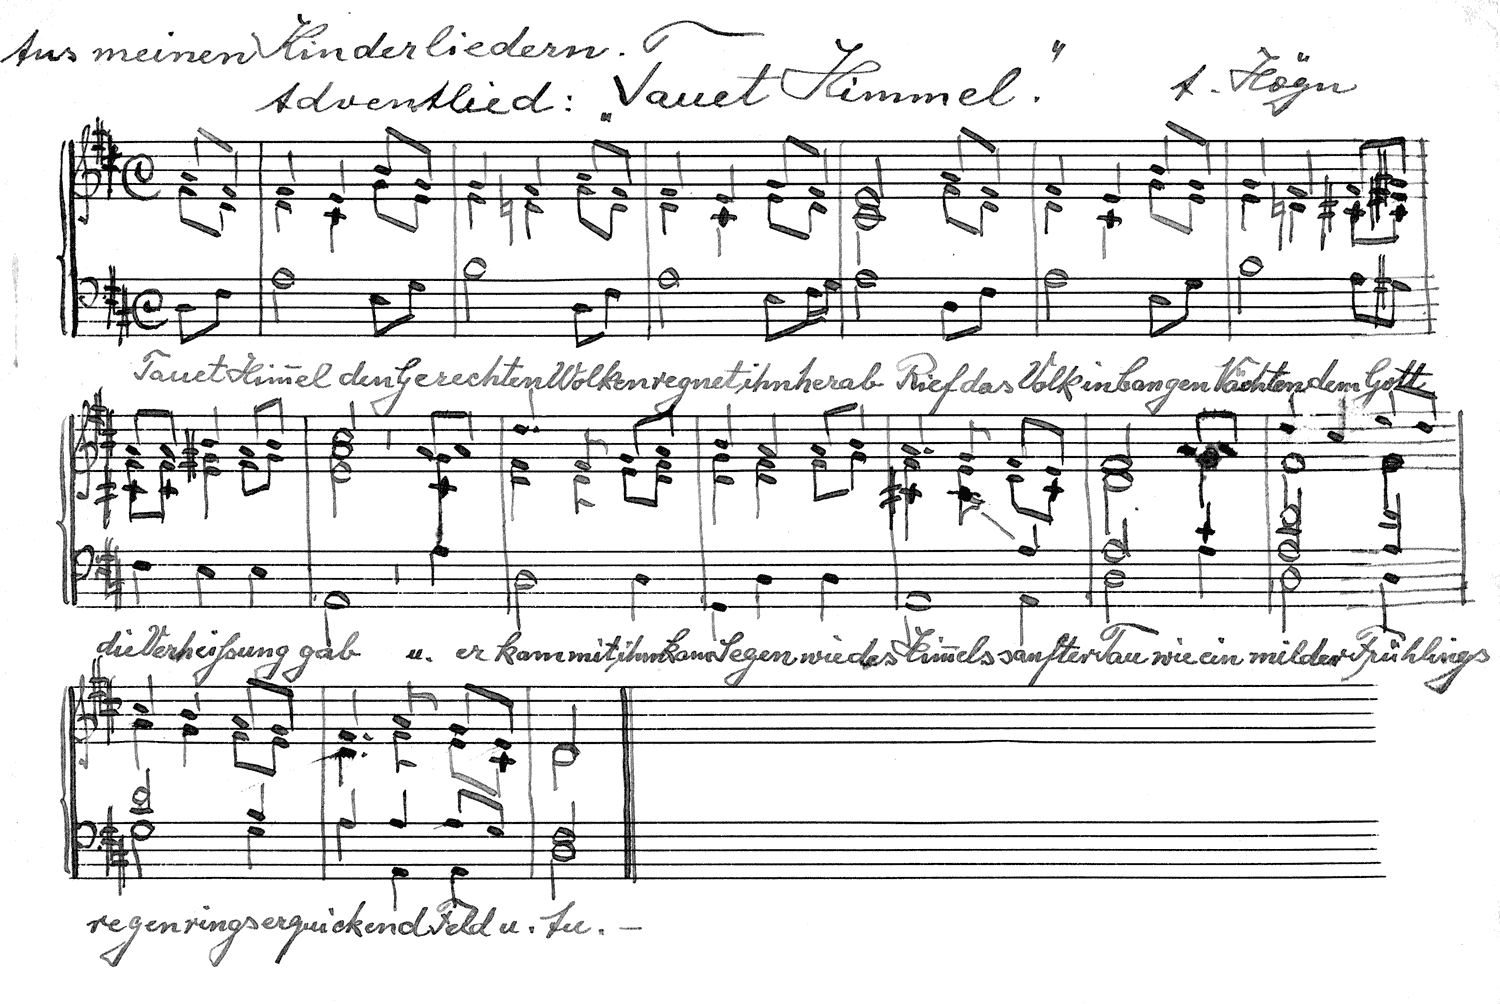 Aus meinen Kinderliedern.
Adventlied: „Tauet Himmel."
A. Högn
Tauet Him̄el den Gerechten Wolken regnet ihn herab Rief das Volk in bangen Nächten dem Gott
die Verheißung gab u. er kam mit ihm kam Segen wie des Him̄els sanfter Tau wie ein milder Frühlings
regen rings erquickend Feld u. Au. –